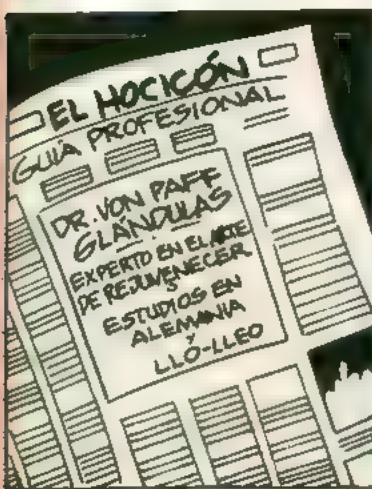 EL HOCICÓN
GUIA PROFESIONAL
DR. VON PAFF
GLANDULAS
EXPERTO EN EL ARTE
DE REJUVENECER
ESTUDIOS EN
ALEMANIA
Y
LLO-LLEO